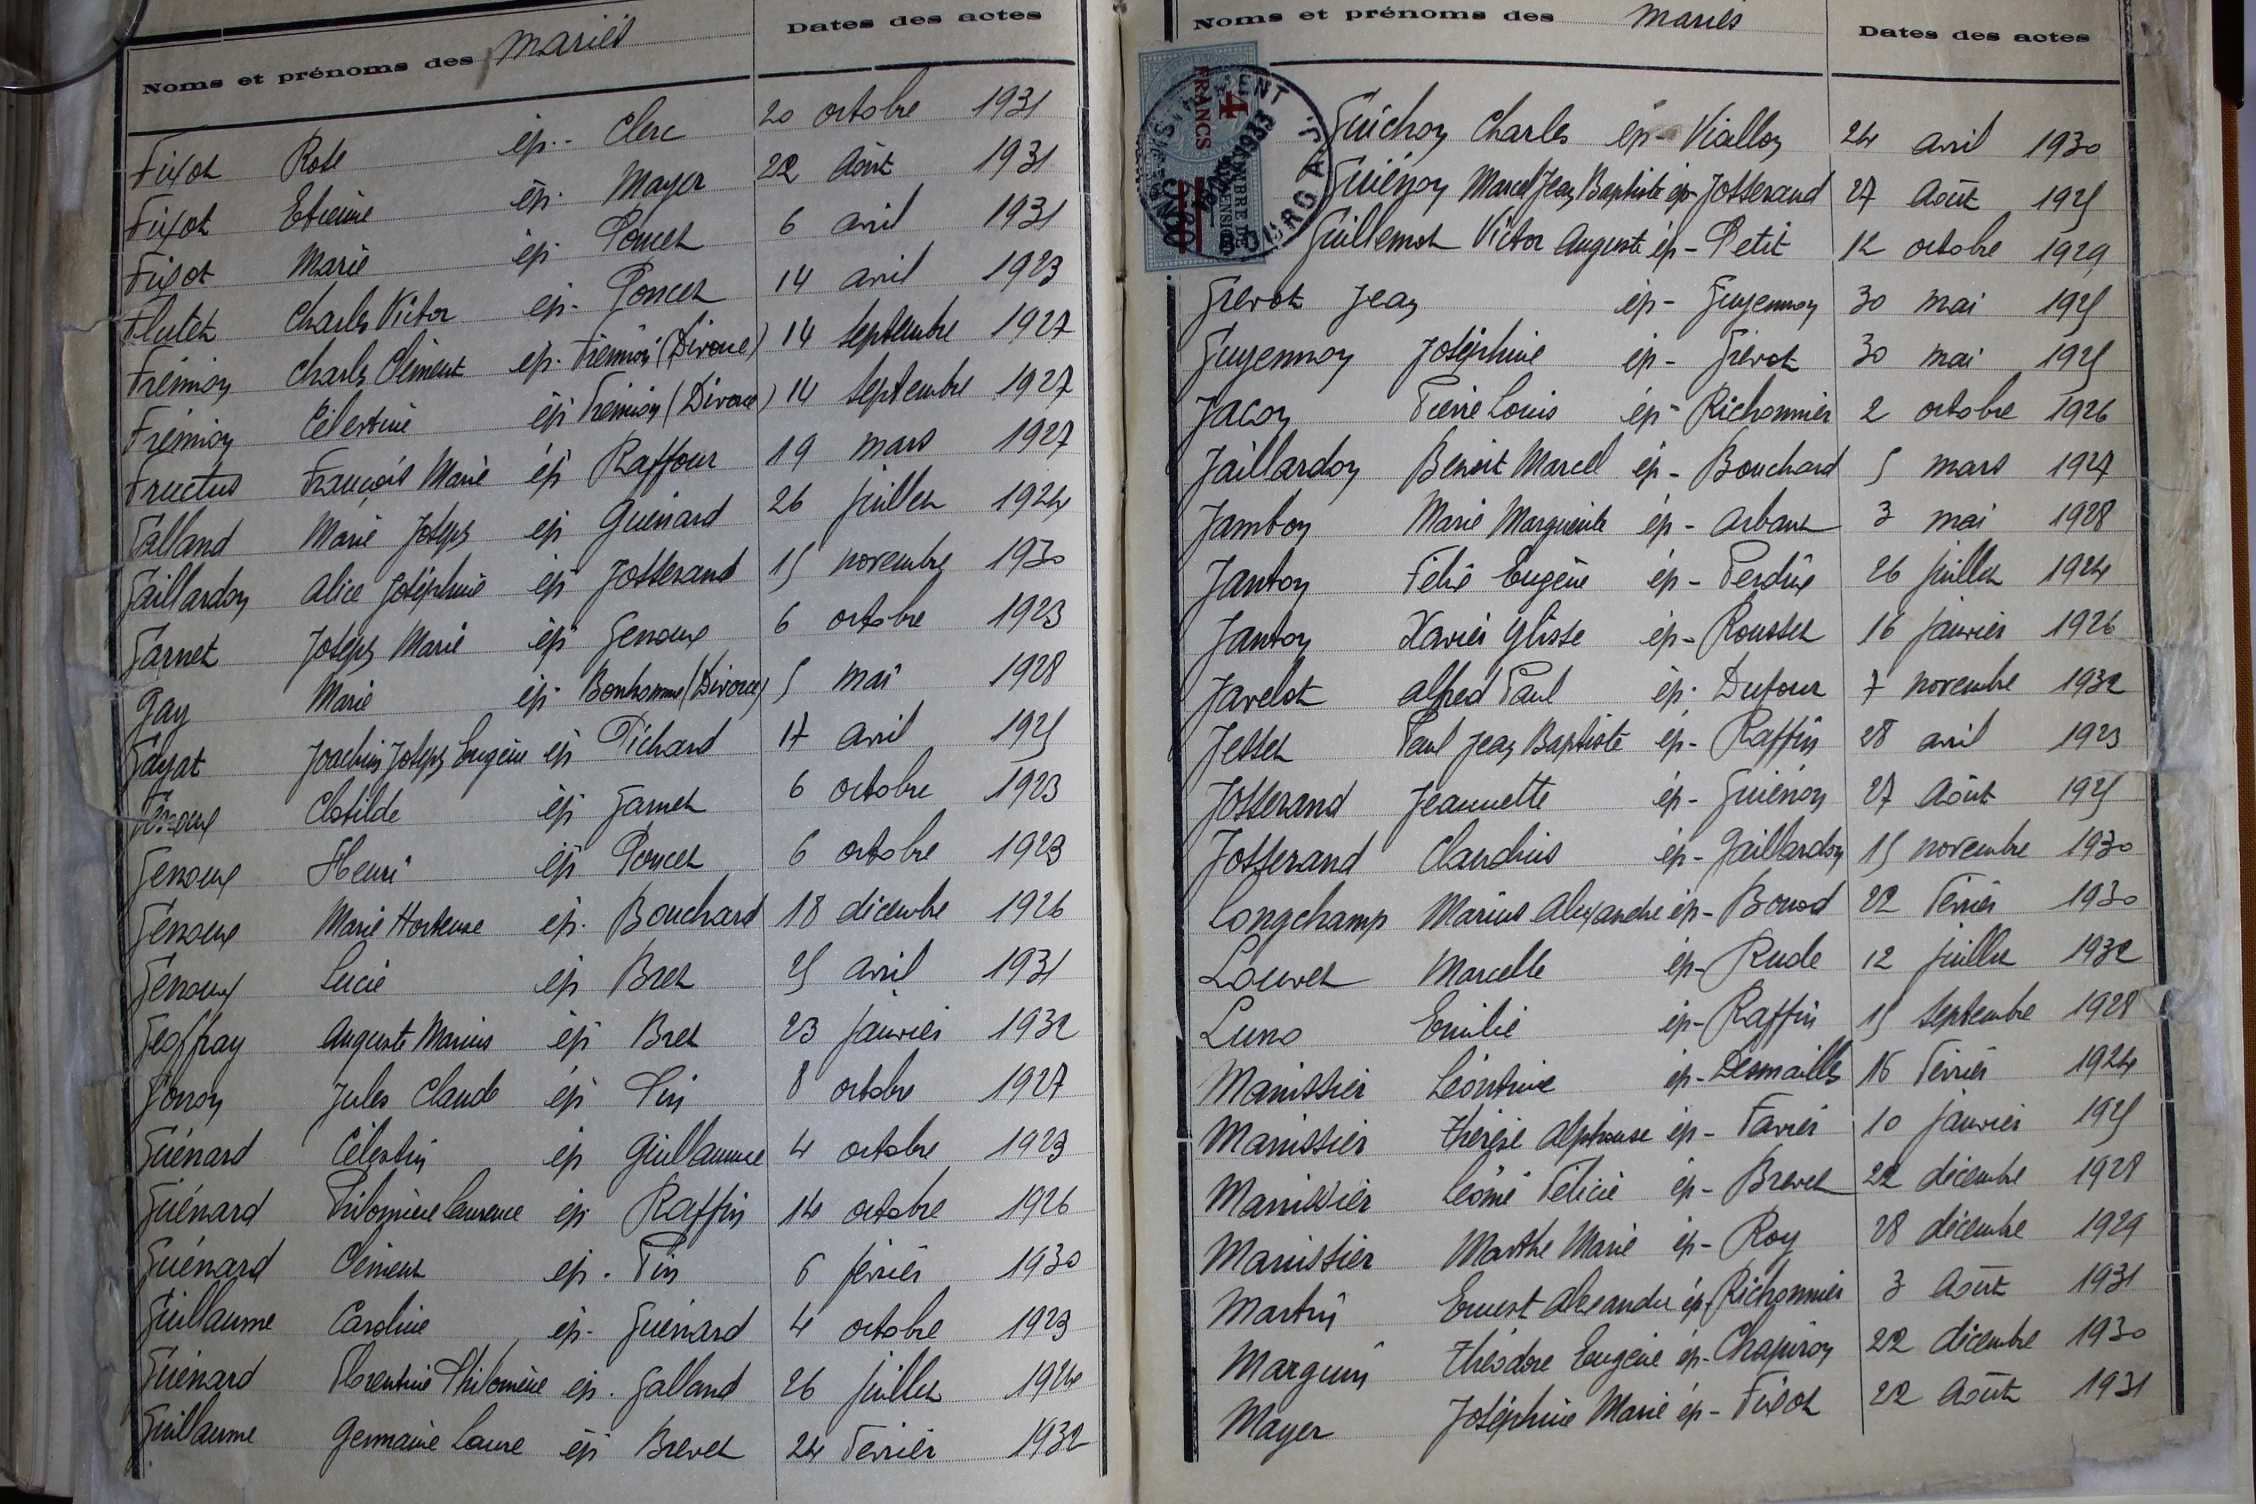 Noms et prénoms des mariés Dates des actes
Fixot Rose ép.- Clerc 20 octobre 1931
Fixot Etienne ép. Mayer 22 Août 1931
Fixot Marie ép Poncet 6 avril 1931
Flutet Charles Victor ép. Poncet 14 avril 1923
Frémion Charles Clément ép. Frémion (Divorce) 14 septembre 1927
Frémion Célestine ép Frémion (Divorce) 14 septembre 1927
Fructus François Marie ép Raffour 19 mars 1927
Galland Marie Joseph ép Guénard 26 juillet 1924
Gaillardon Alice Joséphine ép Josserand 15 novembre 1930
Garnet Joseph Marie ép Genoux 6 octobre 1923
Gay Marie ép Bonhomme (Divorce) 5 mai 1928
Gayat Joachim Joseph Eugène ép Pichard 17 avril 1925
Genoux Clotilde ép Garnet 6 octobre 1923
Genoux Henri ép Poncet 6 octobre 1923
Genoux Marie Hortense ép. Bouchard 18 décembre 1926
Genoux Lucie ép Bret 25 avril 1931
Geoffray Auguste Marius ép Bret 23 janvier 1932
Gonon Jules Claude ép Pin 8 octobre 1927
Guénard Célestin ép Guillaume 4 octobre 1923
Guénard Philomène Laurence ép Raffin 14 octobre 1926
Guénard Clément ép. Pin 6 février 1930
Guillaume Caroline ép- Guénard 4 octobre 1923
Guénard Florentine Philomène ép. Galland 26 juillet 1924
Guillaume Germaine Laure ép Brevet 24 Février 1932
Noms et prénoms des mariés Dates des actes
4 FRANCS
Guichon Charles ép- Viallon 24 avril 1930
Guiénon Marcel Jean Baptiste ép- Josserand 27 Août 1925
Guillemot Victor Auguste ép- Petit 12 octobre 1929
Grevot Jean ép- Guyennon 30 mai 1925
Guyennon Joséphine ép- Grevot 30 mai 1925
Jacon Pierre Louis ép- Richonnier 2 octobre 1926
Jaillardon Benoit Marcel ép- Bouchard 5 mars 1927
Jambon Marie Marguerite ép- Arbant 3 mai 1928
Janton Félix Eugène ép- Perdrix 26 juillet 1924
Janton Xavier Ylisse ép- Rousset 16 janvier 1926
Javelot Alfred Paul ép. Dufour 7 novembre 1932
Jesset Paul Jean Baptiste ép- Raffin 28 avril 1923
Josserand Jeannette ép- Guiénon 27 Août 1925
Josserand Claudius ép- Gaillardon 15 novembre 1930
Longchamp Marius Alexandre ép- Bonod 22 Février 1930
Louvet Marcelle ép- Rude 12 juillet 1932
Luno Emilie ép- Raffin 15 septembre 1928
Manissier Léontine ép- Desmaille 16 Février 1924
Manissier Thérèse Alphonse ép- Favier 10 janvier 1925
Manissier Léonie Félicie ép- Brevet 22 décembre 1928
Manissier Marthe Marie ép- Roy 28 décembre 1929
Martin Ernest Alexandre ép- Richonnier 3 Août 1931
Marguin Théodore Eugène ép- Chapiron 22 décembre 1930
Mayer Joséphine Marie ép- Fixot 22 Août 1931